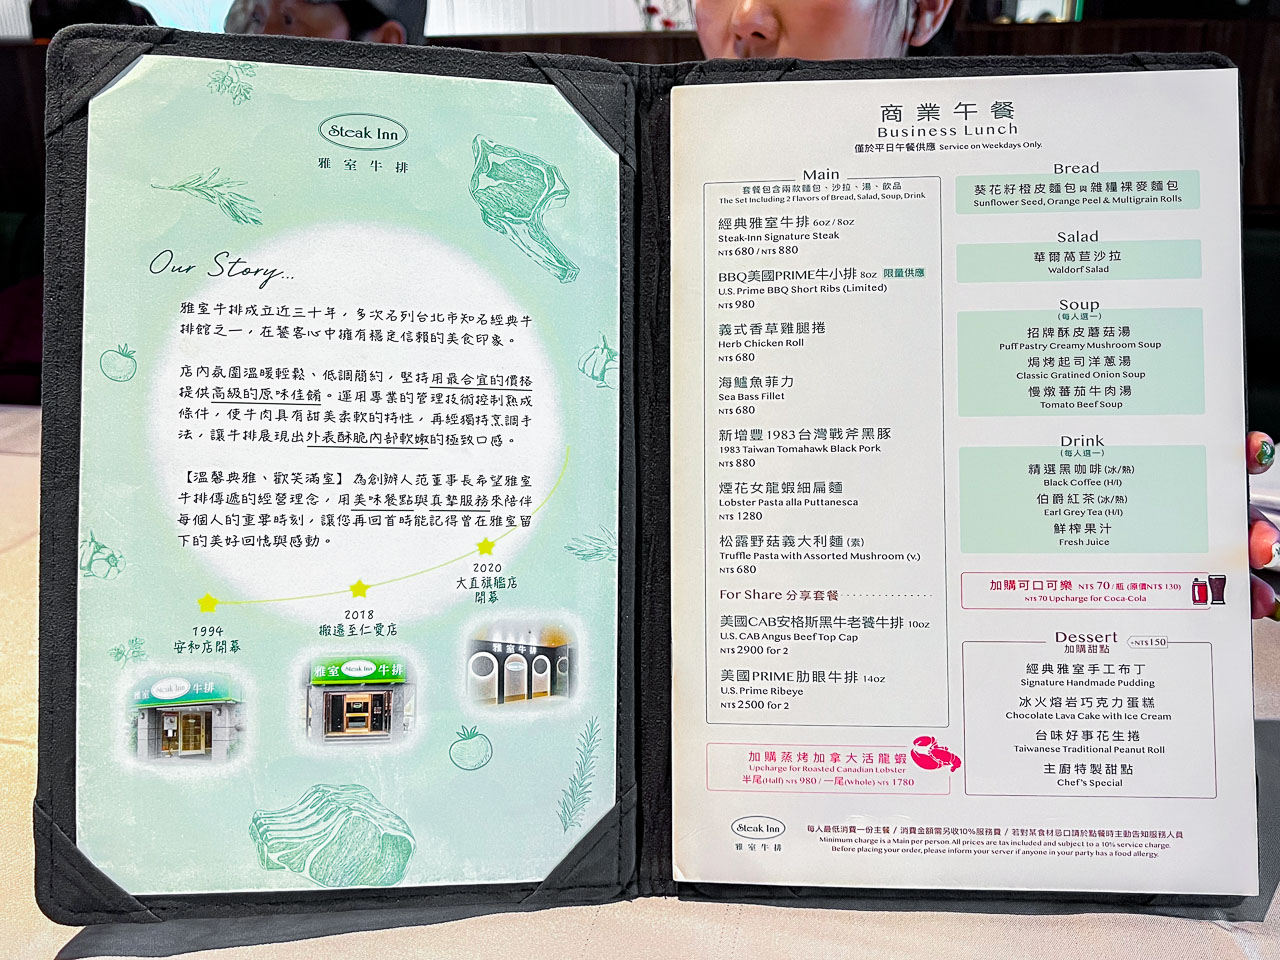 Steak Inn
雅室牛排
Our Story...
雅室牛排成立近三十年，多次名列台北市知名經典牛
排館之一，在饕客心中擁有穩定信賴的美食印象。
店內氛圍溫暖輕鬆、低調簡約，堅持用最合宜的價格
提供高級的原味佳餚。運用專業的管理技術控制熟成
條件，使牛肉具有甜美柔軟的特性，再經獨特烹調手
法，讓牛排展現出外表酥脆內部軟嫩的極致口感。
【溫馨典雅、歡笑滿室】為創辦人范董事長希望雅室
牛排傳遞的經營理念，用美味餐點與真摯服務來陪伴
每個人的重要時刻，讓您再回首時能記得曾在雅室留
下的美好回憶與感動。
1994
安和店開幕
2018
搬遷至仁愛店
2020
大直旗艦店
開幕
雅室 Steak Inn 牛排
雅室 Steak Inn 牛排
雅室牛排
商業午餐
Business Lunch
僅於平日午餐供應 Service on Weekdays Only.
Main
套餐包含兩款麵包、沙拉、湯、飲品
The Set Including 2 Flavors of Bread, Salad, Soup, Drink
經典雅室牛排 6oz / 8oz
Steak-Inn Signature Steak
NT$ 680 / NT$ 880
BBQ美國PRIME牛小排 8oz 限量供應
U.S. Prime BBQ Short Ribs (Limited)
NT$ 980
義式香草雞腿捲
Herb Chicken Roll
NT$ 680
海鱸魚菲力
Sea Bass Fillet
NT$ 680
新增豐1983台灣戰斧黑豚
1983 Taiwan Tomahawk Black Pork
NT$ 880
煙花女龍蝦細扁麵
Lobster Pasta alla Puttanesca
NT$ 1280
松露野菇義大利麵 (素)
Truffle Pasta with Assorted Mushroom (v.)
NT$ 680
For Share 分享套餐
美國CAB安格斯黑牛老饕牛排 10oz
U.S. CAB Angus Beef Top Cap
NT$ 2900 for 2
美國PRIME肋眼牛排 14oz
U.S. Prime Ribeye
NT$ 2500 for 2
加購蒸烤加拿大活龍蝦
Upcharge for Roasted Canadian Lobster
半尾(Half) NT$ 980 / 一尾(Whole) NT$ 1780
Bread
葵花籽橙皮麵包 與 雜糧裸麥麵包
Sunflower Seed, Orange Peel & Multigrain Rolls
Salad
華爾萵苣沙拉
Waldorf Salad
Soup
(每人選一)
招牌酥皮蘑菇湯
Puff Pastry Creamy Mushroom Soup
焗烤起司洋蔥湯
Classic Gratined Onion Soup
慢燉蕃茄牛肉湯
Tomato Beef Soup
Drink
(每人選一)
精選黑咖啡 (冰/熱)
Black Coffee (H/I)
伯爵紅茶 (冰/熱)
Earl Grey Tea (H/I)
鮮榨果汁
Fresh Juice
加購可口可樂 NT$ 70 / 瓶 (原價NT$ 130)
NT$ 70 Upcharge for Coca-Cola
Dessert +NT$150
加購甜點
經典雅室手工布丁
Signature Handmade Pudding
冰火熔岩巧克力蛋糕
Chocolate Lava Cake with Ice Cream
台味好事花生捲
Taiwanese Traditional Peanut Roll
主廚特製甜點
Chef's Special
Steak Inn
雅室牛排
每人最低消費一份主餐 / 消費金額需另收10%服務費 / 若對某食材忌口請於點餐時主動告知服務人員
Minimum charge is a Main per person. All prices are tax included and subject to a 10% service charge.
Before placing your order, please inform your server if anyone in your party has a food allergy.